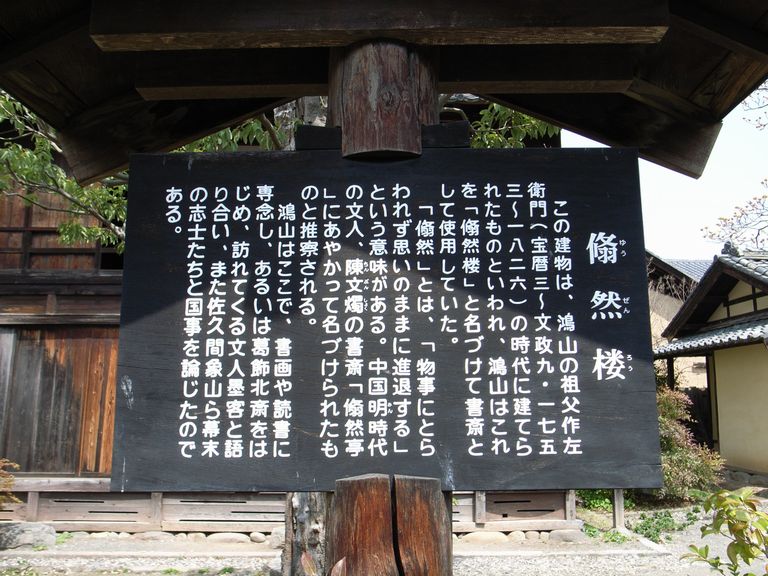 翛然楼
ゆう ぜん ろう
この建物は、鴻山の祖父作左
衛門(宝暦三〜文政九・一七五
三〜一八二六)の時代に建てら
れたものといわれ、鴻山はこれ
を「翛然楼」と名づけて書斎と
して使用していた。
「翛然」とは、「物事にとら
われず思いのままに進退する」
という意味がある。中国明時代
の文人、陳文燭の書斎「翛然亭
」にあやかって名づけられたも
のと推察される。
鴻山はここで、書画や読書に
専念し、あるいは葛飾北斎をは
じめ、訪れてくる文人墨客と語
り合い、また佐久間象山ら幕末
の志士たちと国事を論じたので
ある。